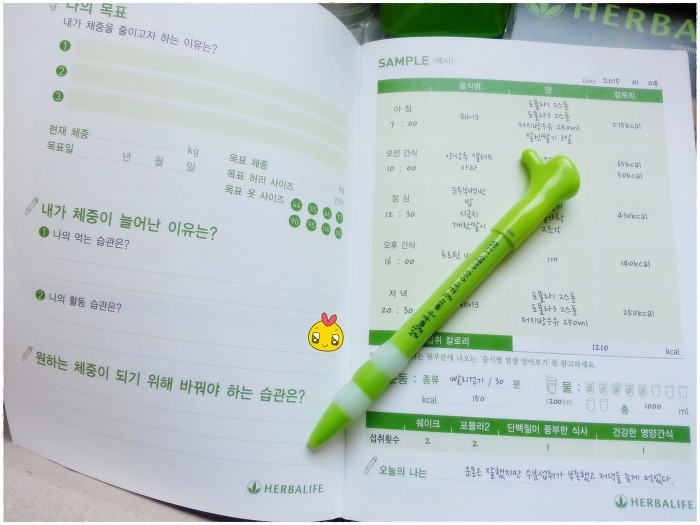 나의 목표
내가 체중을 줄이고자 하는 이유는?
1
2
3
현재 체중 kg
목표일 년 월 일
목표 체중 kg
목표 허리 사이즈 인치
목표 옷 사이즈 44 55 66 77
90 95
내가 체중이 늘어난 이유는?
1 나의 먹는 습관은?
2 나의 활동 습관은?
원하는 체중이 되기 위해 바꿔야 하는 습관은?
HERBALIFE
HERBALIFE
SAMPLE (예시)
Date. 2015 01 04
음식명 양 칼로리
아침
7 : 00
쉐이크
포뮬라1 2스푼
포뮬라3 2스푼
저지방우유 250ml
얼린딸기 3알
275kcal
오전 간식
10 : 00
양상추 샐러드
사과
65kcal
50kcal
점심
12 : 30
순두부백반
밥
시금치
계란말이
2조각
430kcal
오후 간식
16 : 00
프로틴
1개
140kcal
저녁
20 : 30
쉐이크
포뮬라1 2스푼
포뮬라3 2스푼
저지방우유 250ml
250kcal
섭취 칼로리 1210 kcal
뒷부분에 나오는 '음식별 열량 알아보기'를 참고하세요.
운동 : 종류 빨리걷기 / 30 분 물 :
kcal 150 200ml 총 1000 ml
쉐이크 포뮬라2 단백질이 풍부한 식사 건강한 영양간식
섭취횟수 2 2 1 1
오늘의 나는 운동은 잘했지만 수분섭취가 부족했고 저녁을 늦게 먹었다.
HERBALIFE